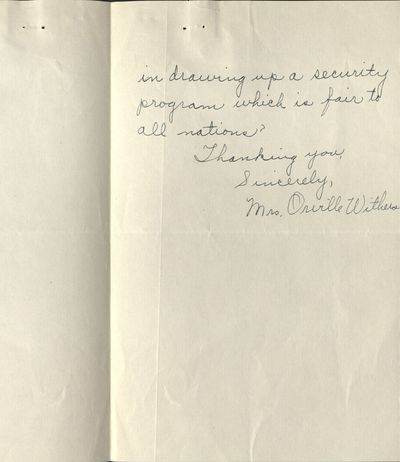 in drawing up a security
program which is fair to
all nations?
Thanking you,
Sincerely,
Mrs. Orville Withers